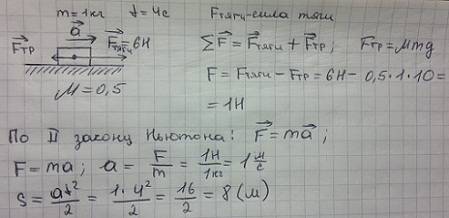 m=1кг t=4с Fтяги-сила тяги
a⃗
F⃗тр F⃗тяги=6Н ΣF⃗=F⃗тяги+F⃗тр; Fтр=Mmg
M=0,5 F=Fтяги-Fтр=6Н-0,5·1·10=
=1Н
По II закону Ньютона: F⃗=ma⃗;
F=ma; a=F/m=1Н/1кг=1м/с
S=at²/2=1·4²/2=16/2=8(м)